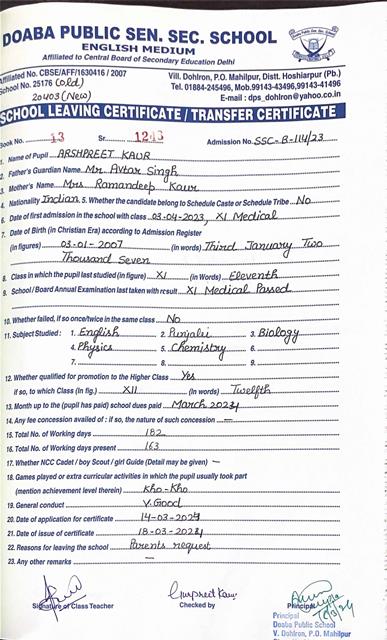 DOABA PUBLIC SEN. SEC. SCHOOL
ENGLISH MEDIUM
Affiliated to Central Board of Secondary Education Delhi
Affiliated No. CBSE/AFF/1630416 / 2007
School No. 25176 (old)
20403 (New)
Vill. Dohlron, P.O. Mahilpur, Distt. Hoshiarpur (Pb.)
Tel. 01884-245496, Mob.99143-43496,99143-41496
E-mail : dps_dohlron@yahoo.co.in
SCHOOL LEAVING CERTIFICATE / TRANSFER CERTIFICATE
Book No. 13 Sr. 1243 Admission No. SSC-B-114/23
1. Name of Pupil ARSHPREET KAUR
2. Father's/Guardian Name Mr. Avtar Singh
3. Mother's Name Mrs Ramandeep Kaur
4. Nationality Indian 5. Whether the candidate belong to Schedule Caste or Schedule Tribe No
6. Date of first admission in the school with class 03-04-2023, XI Medical
7. Date of Birth (in Christian Era) according to Admission Register
(in figures) 03-01-2007 (in words) Third January Two
Thousand Seven
8. Class in which the pupil last studied (in figure) XI (in Words) Eleventh
9. School / Board Annual Examination last taken with result XI Medical Passed
10. Whether failed, if so once/twice in the same class No
11. Subject Studied : 1. English 2. Punjabi 3. Biology
4. Physics 5. Chemistry 6.
7. 8. 9.
12. Whether qualified for promotion to the Higher Class Yes
if so, to which Class (In fig.) XII (in words) Twelfth
13. Month up to the (pupil has paid) school dues paid March 2024
14. Any fee concession availed of : if so, the nature of such concession —
15. Total No. of Working days 182
16. Total No. of Working days present 163
17. Whether NCC Cadet / boy Scout / girl Guide (Detail may be given) —
18. Games played or extra curricular activities in which the pupil usually took part
(mention achievement level therein) Kho-Kho
19. General conduct V.Good
20. Date of application for certificate 14-03-2024
21. Date of issue of certificate 18-03-2024
22. Reasons for leaving the school Parents request
23. Any other remarks —
Signature of Class Teacher
Gurpreet Kaur
Checked by
Principal
Principal
Doaba Public School
V. Dohlron, P.O. Mahilpur